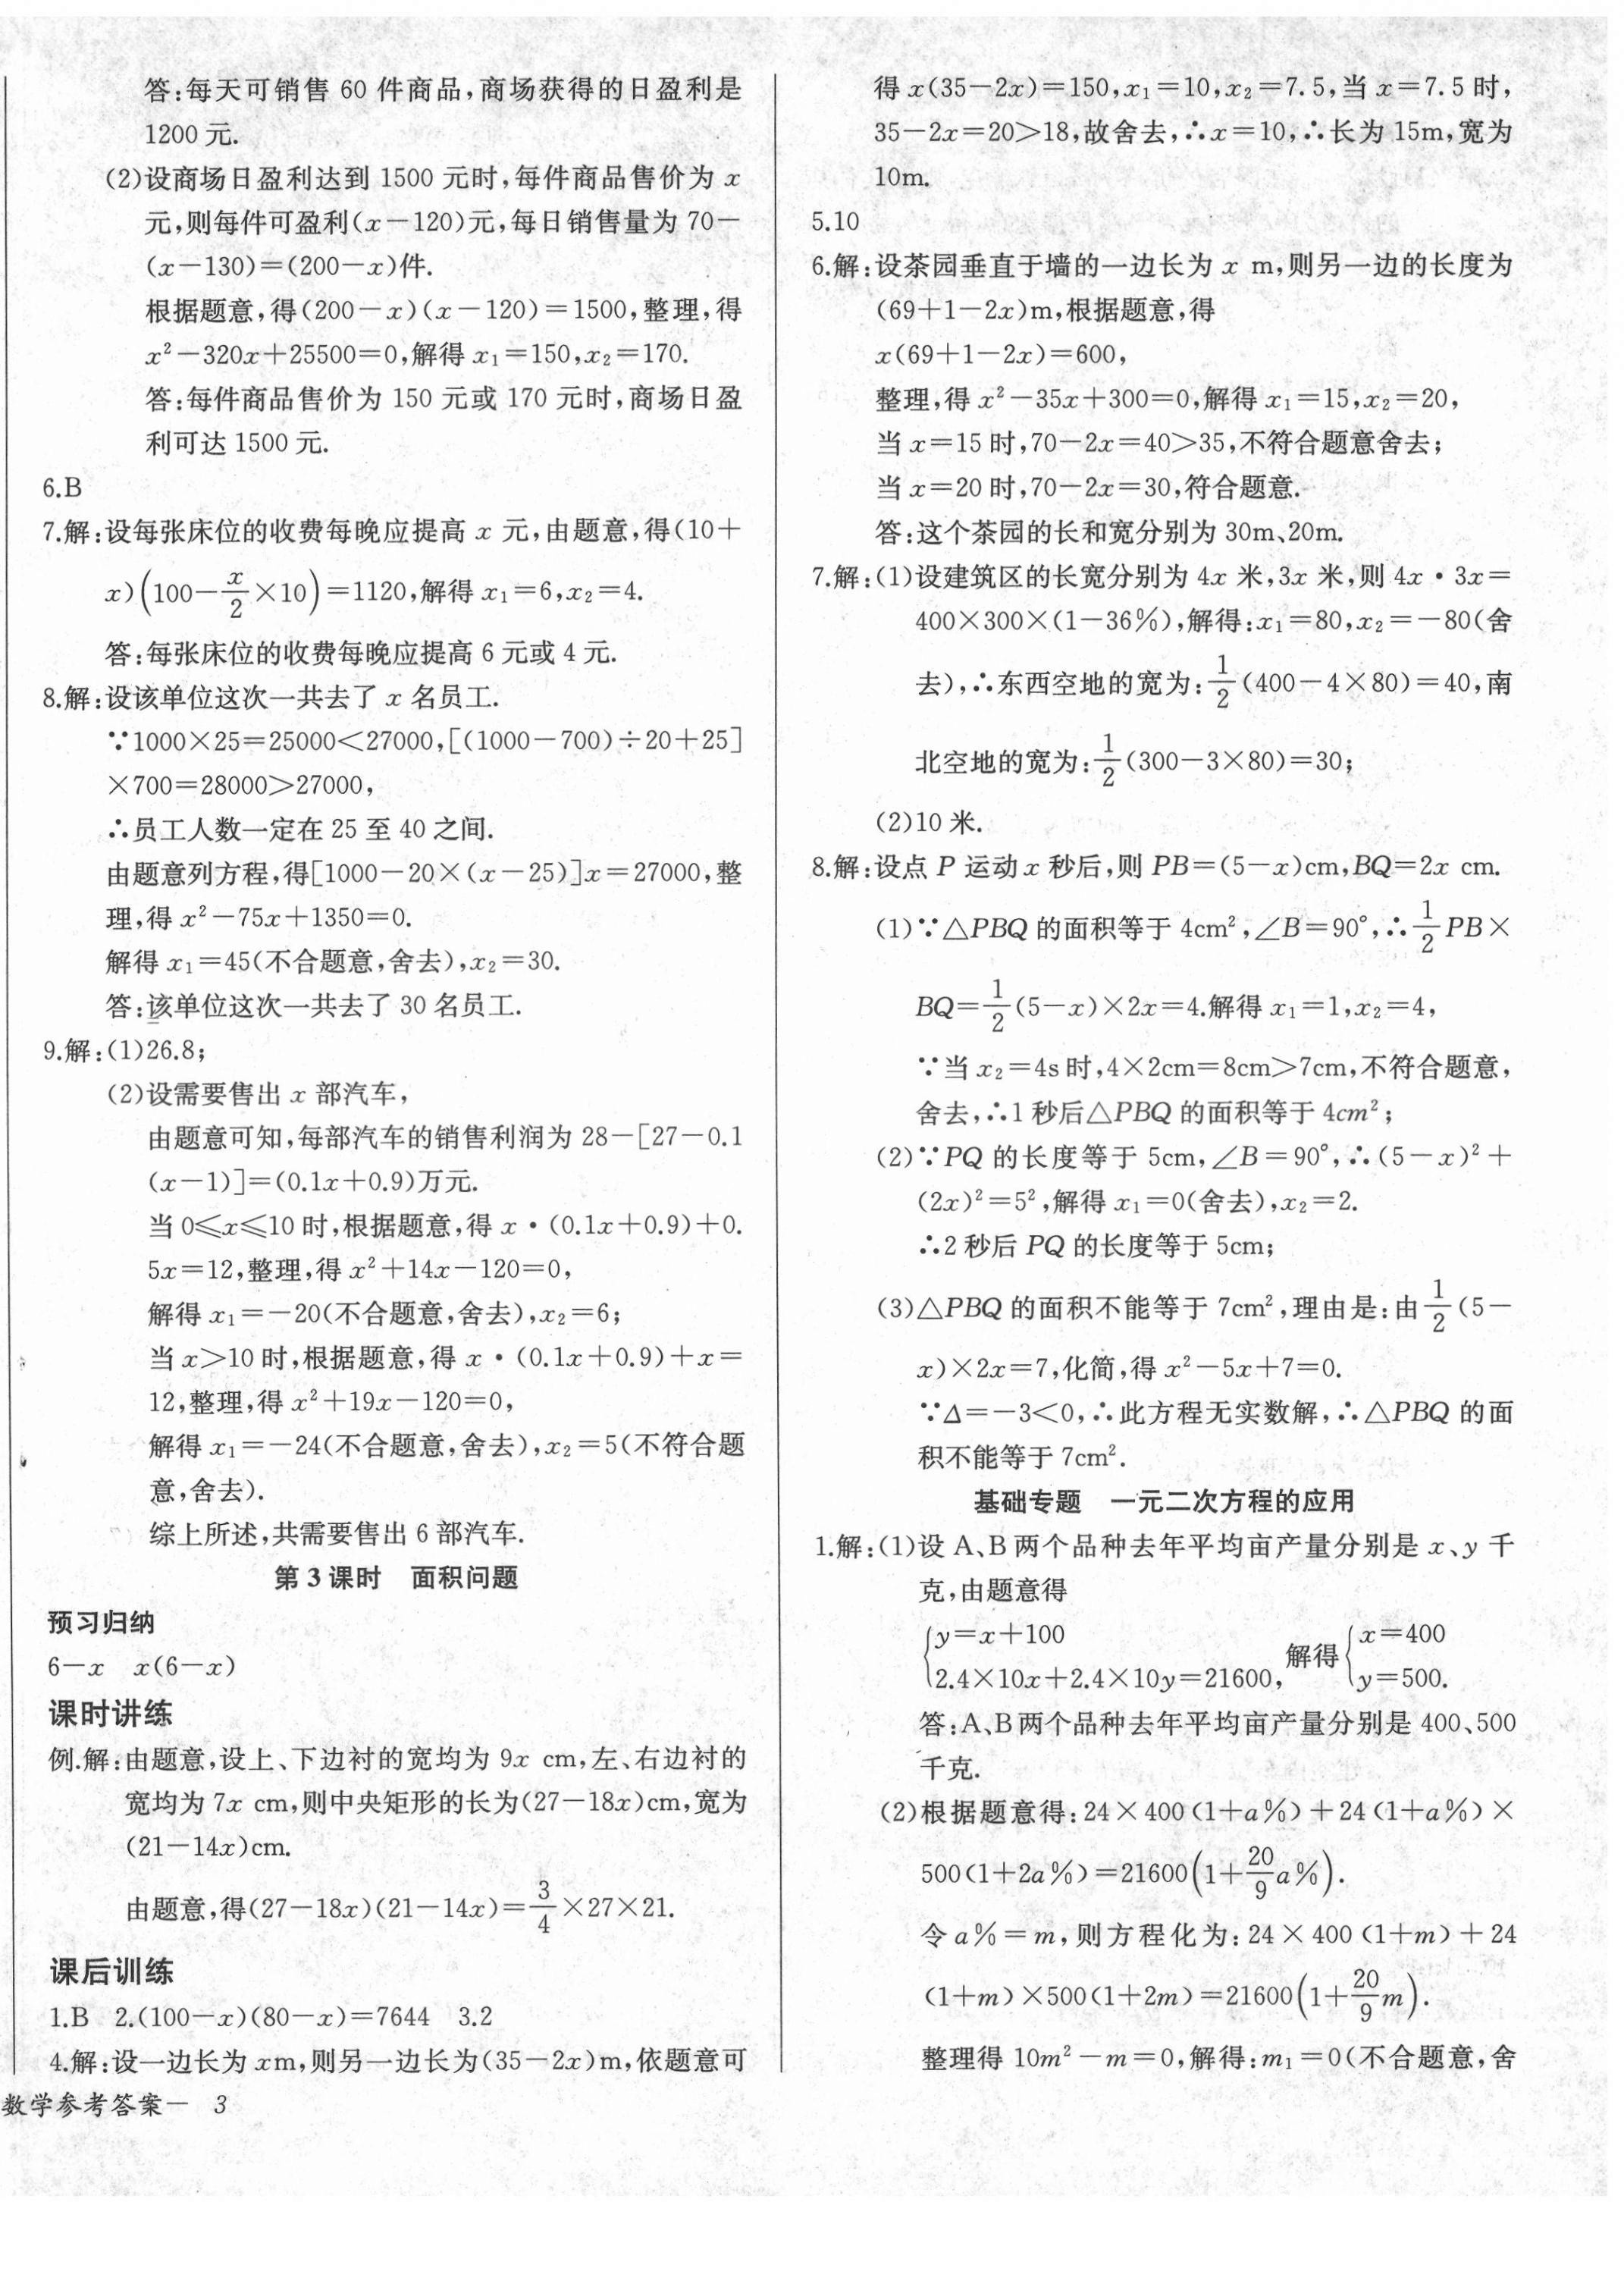 答:每天可销售 60 件商品,商场获得的日盈利是
1200 元.
(2)设商场日盈利达到 1500 元时,每件商品售价为 x
元,则每件可盈利(x－120)元,每日销售量为 70－
(x－130)＝(200－x)件.
根据题意,得(200－x)(x－120)＝1500,整理,得
x²－320x＋25500＝0,解得 x₁＝150,x₂＝170.
答:每件商品售价为 150 元或 170 元时,商场日盈
利可达 1500 元.
6.B
7.解:设每张床位的收费每晚应提高 x 元,由题意,得(10＋
x)(100－x/2×10)＝1120,解得 x₁＝6,x₂＝4.
答:每张床位的收费每晚应提高 6 元或 4 元.
8.解:设该单位这次一共去了 x 名员工.
∵1000×25＝25000＜27000,[(1000－700)÷20＋25]
×700＝28000＞27000,
∴员工人数一定在 25 至 40 之间.
由题意列方程,得[1000－20×(x－25)]x＝27000,整
理,得 x²－75x＋1350＝0.
解得 x₁＝45(不合题意,舍去),x₂＝30.
答:该单位这次一共去了 30 名员工.
9.解:(1)26.8;
(2)设需要售出 x 部汽车,
由题意可知,每部汽车的销售利润为 28－[27－0.1
(x－1)]＝(0.1x＋0.9)万元.
当 0≤x≤10 时,根据题意,得 x·(0.1x＋0.9)＋0.
5x＝12,整理,得 x²＋14x－120＝0,
解得 x₁＝－20(不合题意,舍去),x₂＝6;
当 x＞10 时,根据题意,得 x·(0.1x＋0.9)＋x＝
12,整理,得 x²＋19x－120＝0,
解得 x₁＝－24(不合题意,舍去),x₂＝5(不符合题
意,舍去).
综上所述,共需要售出 6 部汽车.
第 3 课时　面积问题
预习归纳
6－x　x(6－x)
课时讲练
例.解:由题意,设上、下边衬的宽均为 9x cm,左、右边衬的
宽均为 7x cm,则中央矩形的长为(27－18x)cm,宽为
(21－14x)cm.
由题意,得(27－18x)(21－14x)＝3/4×27×21.
课后训练
1.B　2.(100－x)(80－x)＝7644　3.2
4.解:设一边长为 xm,则另一边长为(35－2x)m,依题意可
数学参考答案－　3
得 x(35－2x)＝150,x₁＝10,x₂＝7.5,当 x＝7.5 时,
35－2x＝20＞18,故舍去,∴x＝10,∴长为 15m,宽为
10m.
5.10
6.解:设茶园垂直于墙的一边长为 x m,则另一边的长度为
(69＋1－2x)m,根据题意,得
x(69＋1－2x)＝600,
整理,得 x²－35x＋300＝0,解得 x₁＝15,x₂＝20,
当 x＝15 时,70－2x＝40＞35,不符合题意舍去;
当 x＝20 时,70－2x＝30,符合题意.
答:这个茶园的长和宽分别为 30m、20m.
7.解:(1)设建筑区的长宽分别为 4x 米,3x 米,则 4x·3x＝
400×300×(1－36%),解得:x₁＝80,x₂＝－80(舍
去),∴东西空地的宽为:1/2(400－4×80)＝40,南
北空地的宽为:1/2(300－3×80)＝30;
(2)10 米.
8.解:设点 P 运动 x 秒后,则 PB＝(5－x)cm,BQ＝2x cm.
(1)∵△PBQ 的面积等于 4cm²,∠B＝90°,∴1/2PB×
BQ＝1/2(5－x)×2x＝4.解得 x₁＝1,x₂＝4,
∵当 x₂＝4s 时,4×2cm＝8cm＞7cm,不符合题意,
舍去,∴1 秒后△PBQ 的面积等于 4cm²;
(2)∵PQ 的长度等于 5cm,∠B＝90°,∴(5－x)²＋
(2x)²＝5²,解得 x₁＝0(舍去),x₂＝2.
∴2 秒后 PQ 的长度等于 5cm;
(3)△PBQ 的面积不能等于 7cm²,理由是:由1/2(5－
x)×2x＝7,化简,得 x²－5x＋7＝0.
∵Δ＝－3＜0,∴此方程无实数解,∴△PBQ 的面
积不能等于 7cm².
基础专题　一元二次方程的应用
1.解:(1)设 A、B 两个品种去年平均亩产量分别是 x、y 千
克,由题意得
{y＝x＋100　　{x＝400
2.4×10x＋2.4×10y＝21600,　解得　y＝500.
答:A、B 两个品种去年平均亩产量分别是 400、500
千克.
(2)根据题意得:24×400(1＋a%)＋24(1＋a%)×
500(1＋2a%)＝21600(1＋20/9a%).
令 a%＝m,则方程化为:24×400(1＋m)＋24
(1＋m)×500(1＋2m)＝21600(1＋20/9m).
整理得 10m²－m＝0,解得:m₁＝0(不合题意,舍